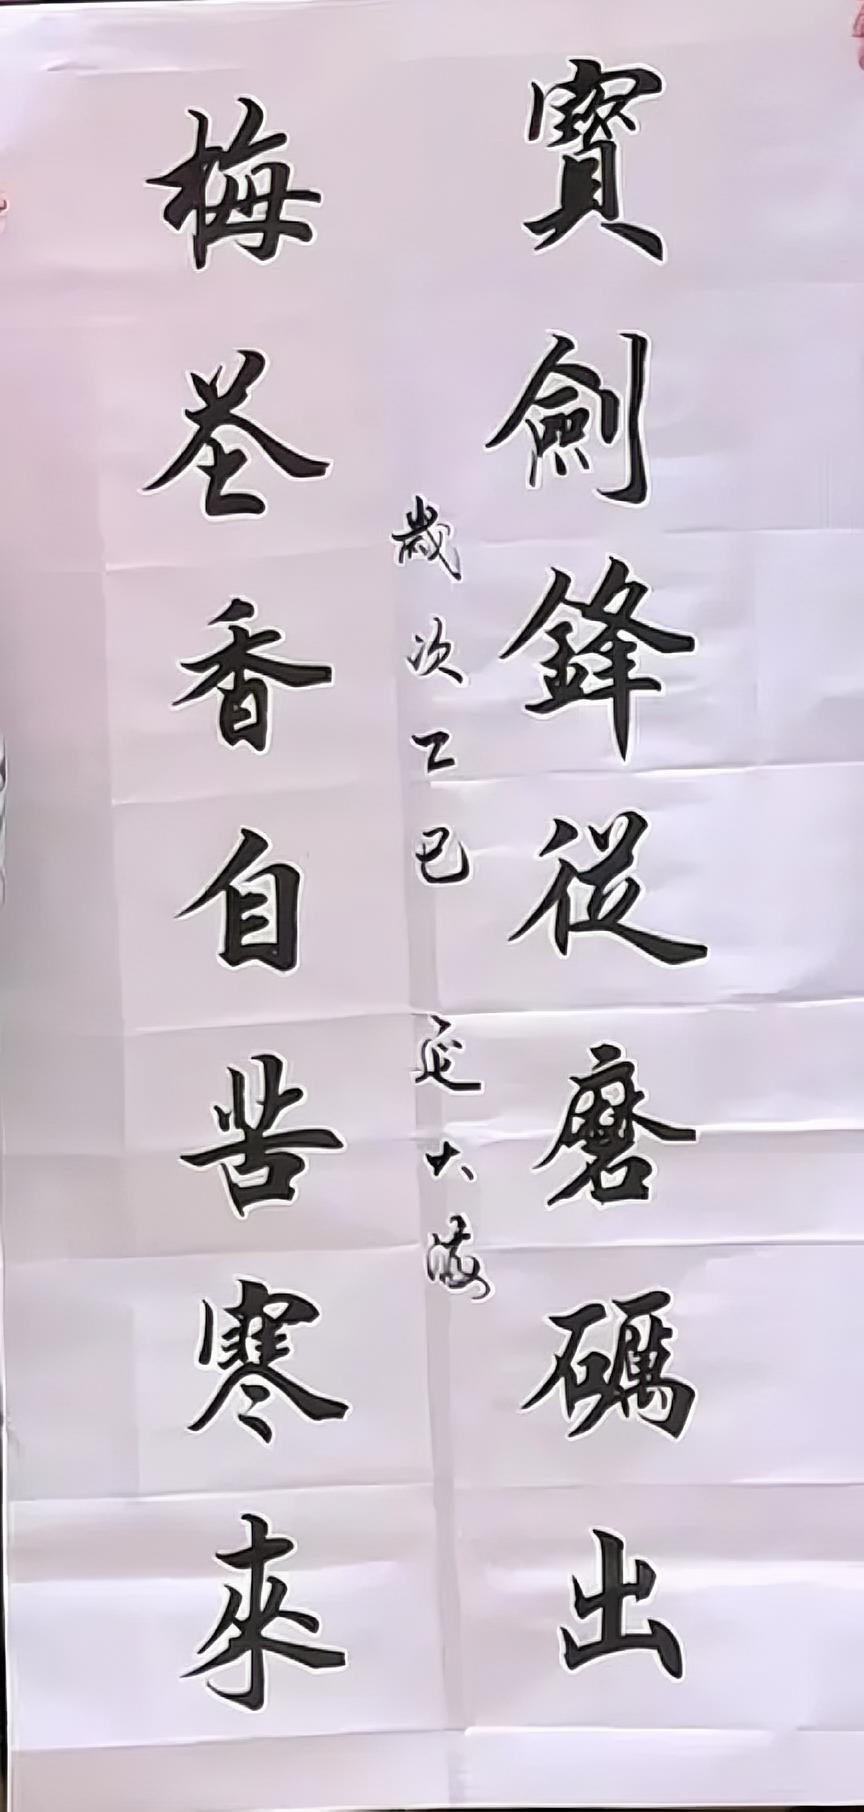 寶劍鋒從磨礪出
梅花香自苦寒來
歲次乙巳 延大海